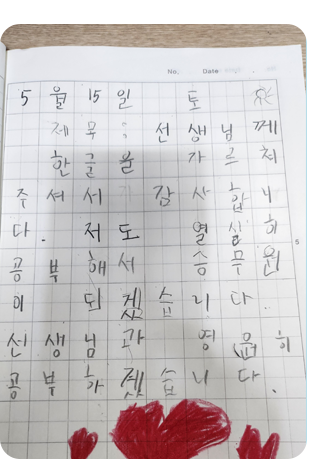 No. Date
5월 15일 토
제목 : 선생님께
한글을 가르쳐
주셔서 감사합니
다. 저도 열심히
5
공부해서 승무원
이 되겠습니다.
선생님과 영원히
공부하겠습니다.